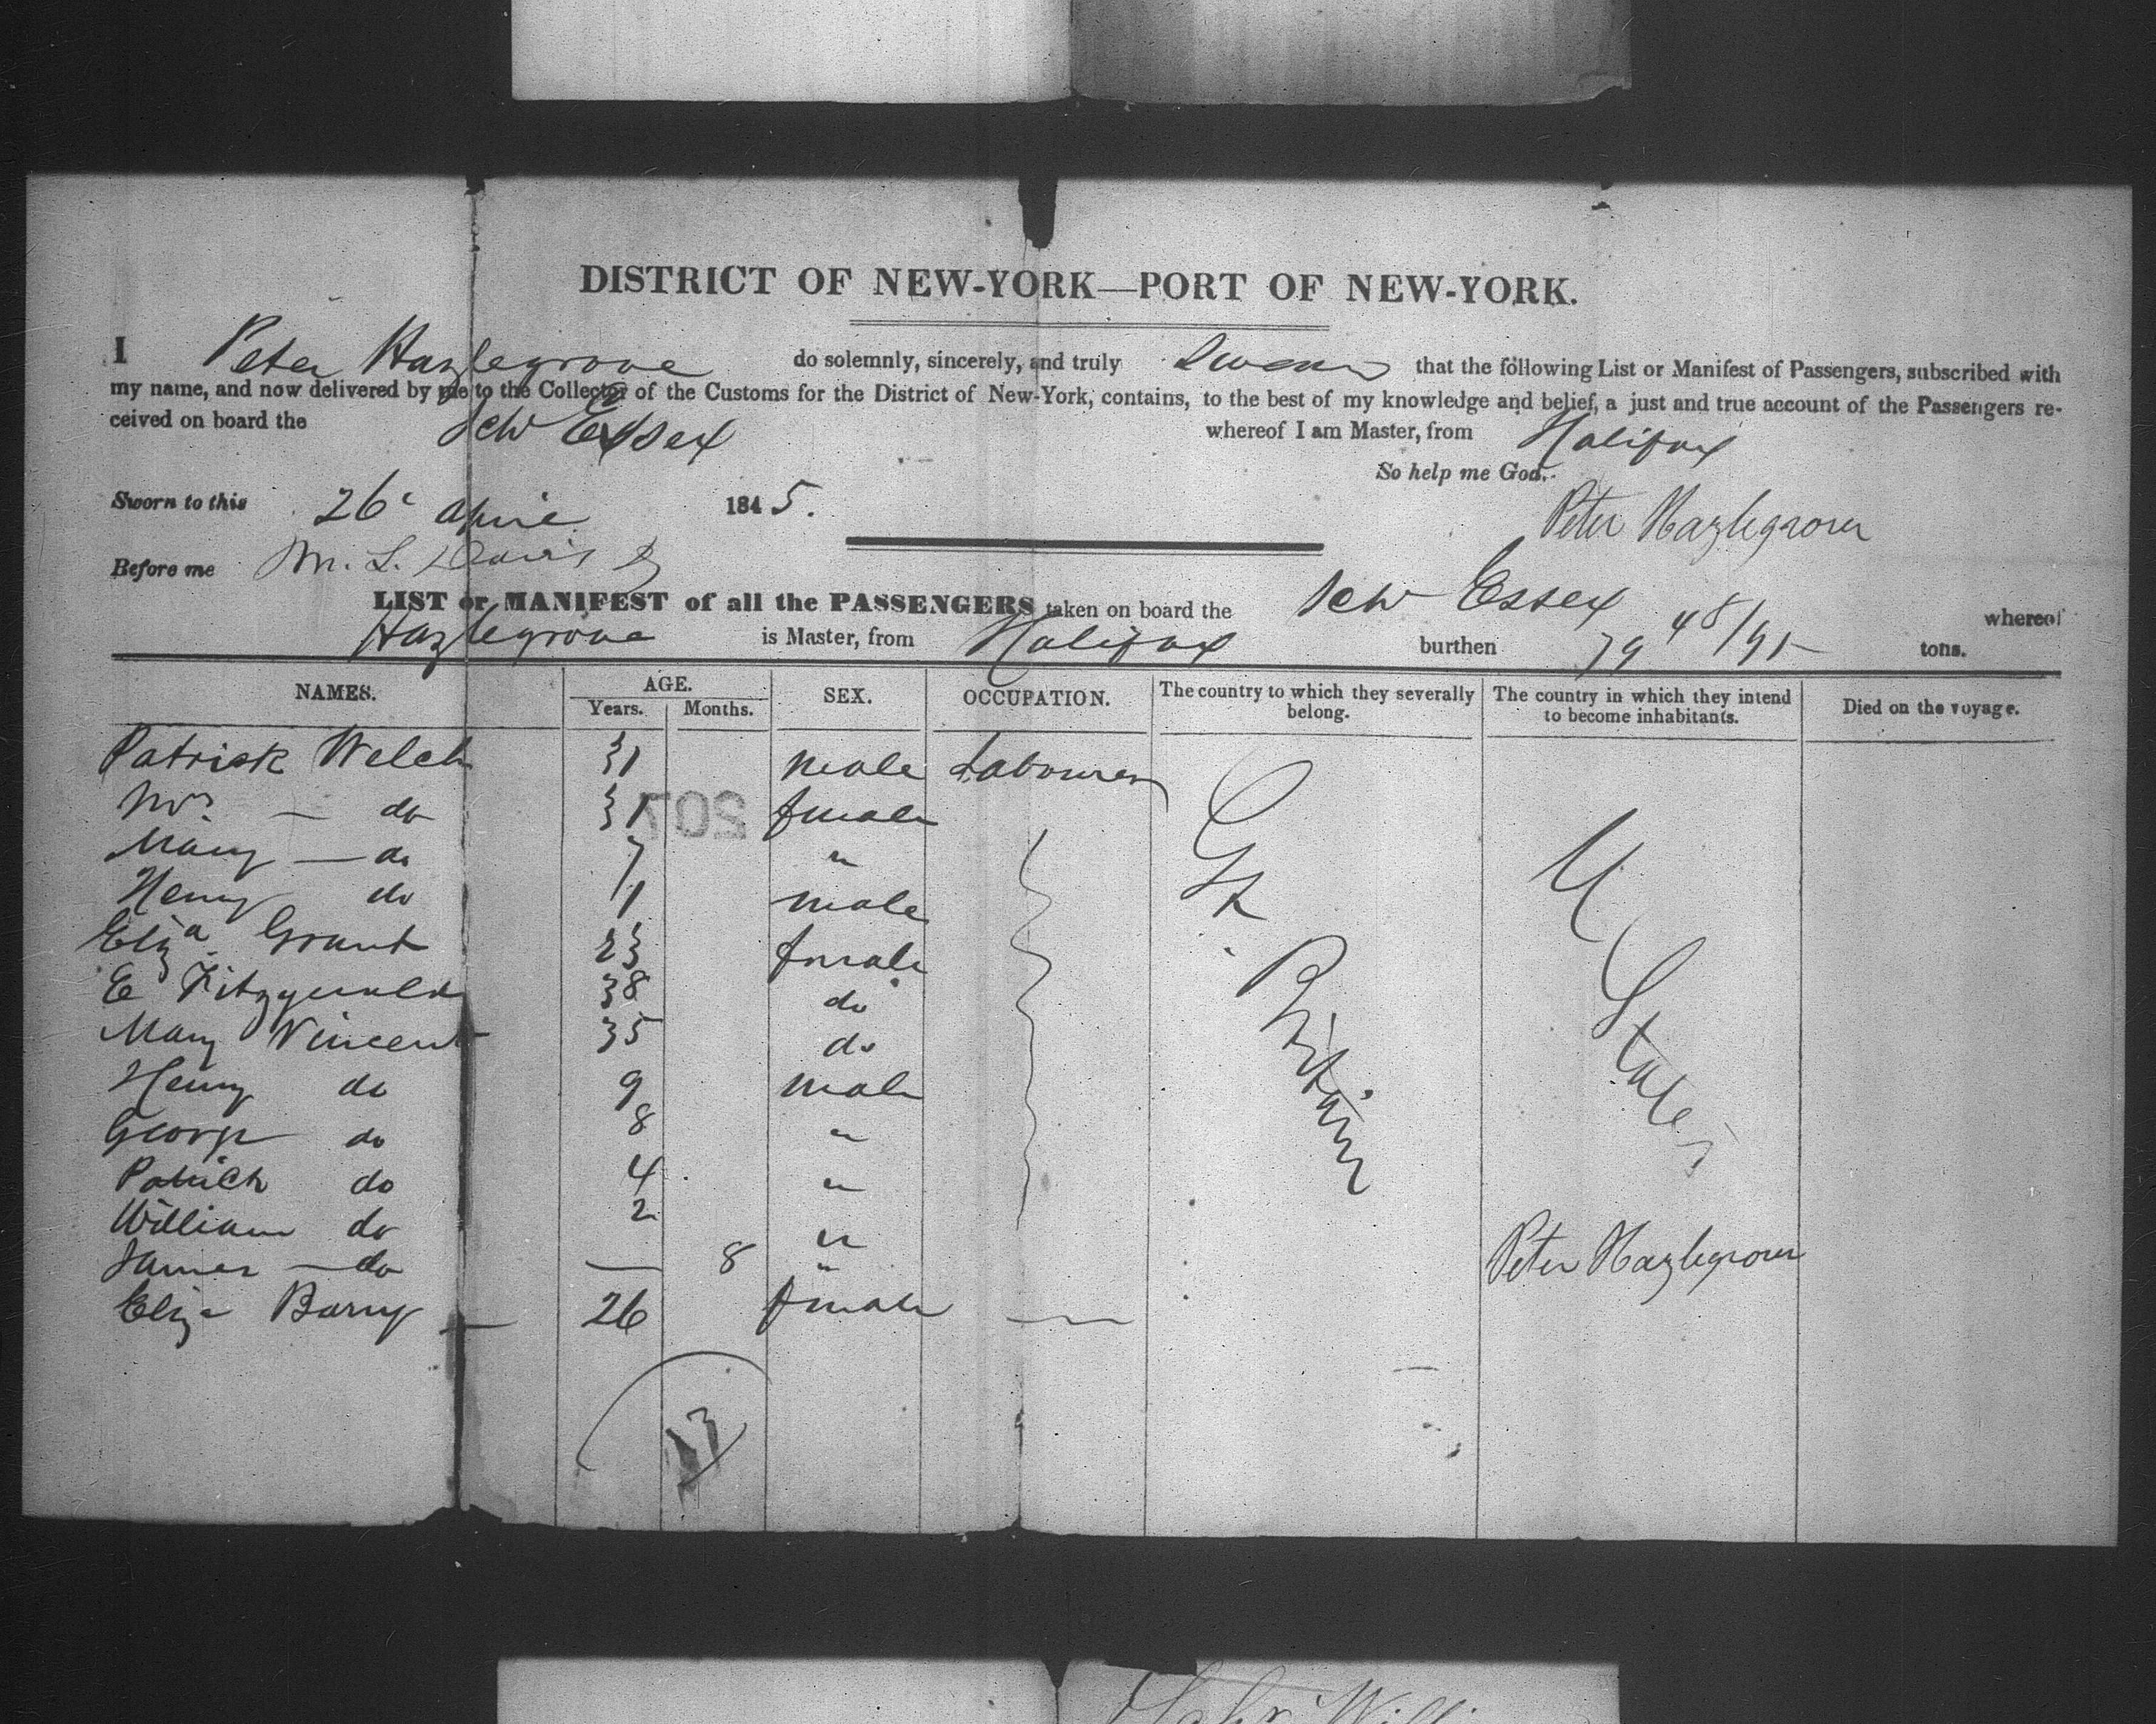 DISTRICT OF NEW-YORK—PORT OF NEW-YORK.
I Peter Hazlegrove do solemnly, sincerely, and truly Swear that the following List or Manifest of Passengers, subscribed with
my name, and now delivered by me to the Collector of the Customs for the District of New-York, contains, to the best of my knowledge and belief, a just and true account of the Passengers re-
ceived on board the Schr Essex whereof I am Master, from Halifax
So help me God.
Sworn to this 26 April 1845.
Peter Hazlegrove
Before me M. L. Davis
LIST or MANIFEST of all the PASSENGERS taken on board the Schr Essex whereof
Hazlegrove is Master, from Halifax burthen 79 48/95 tons.
NAMES. AGE. Years. Months. SEX. OCCUPATION. The country to which they severally belong. The country in which they intend to become inhabitants. Died on the voyage.
Patrick Welch 31 male Labourer
Mrs. — do 31 female
Mary — do 7 "
Henry do 1 male
Eliza Grant 23 female
E Fitzgerald 38 do
Mary Vincent 35 do
Henry do 9 male
George do 8 "
Patrick do 4 "
William do 2 "
James — do — 8 "
Eliza Barry 26 female
Gt. Britain
U States
Peter Hazlegrove
207
13